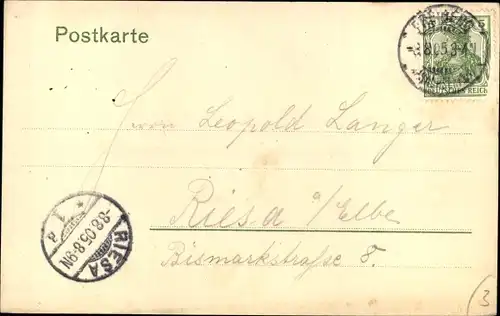 Postkarte
8.8.05.8-9N
REICH
Herrn Leopold Langer
Riesa a/Elbe
Bismarkstraße 8.
RIESA
-8.8.05.8-9N
* 1 a
3